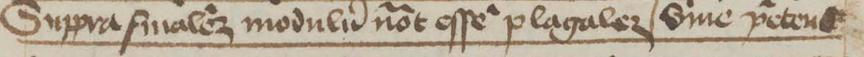 Suppra finalez modulu nōt esse plagalez / sine p̄tend